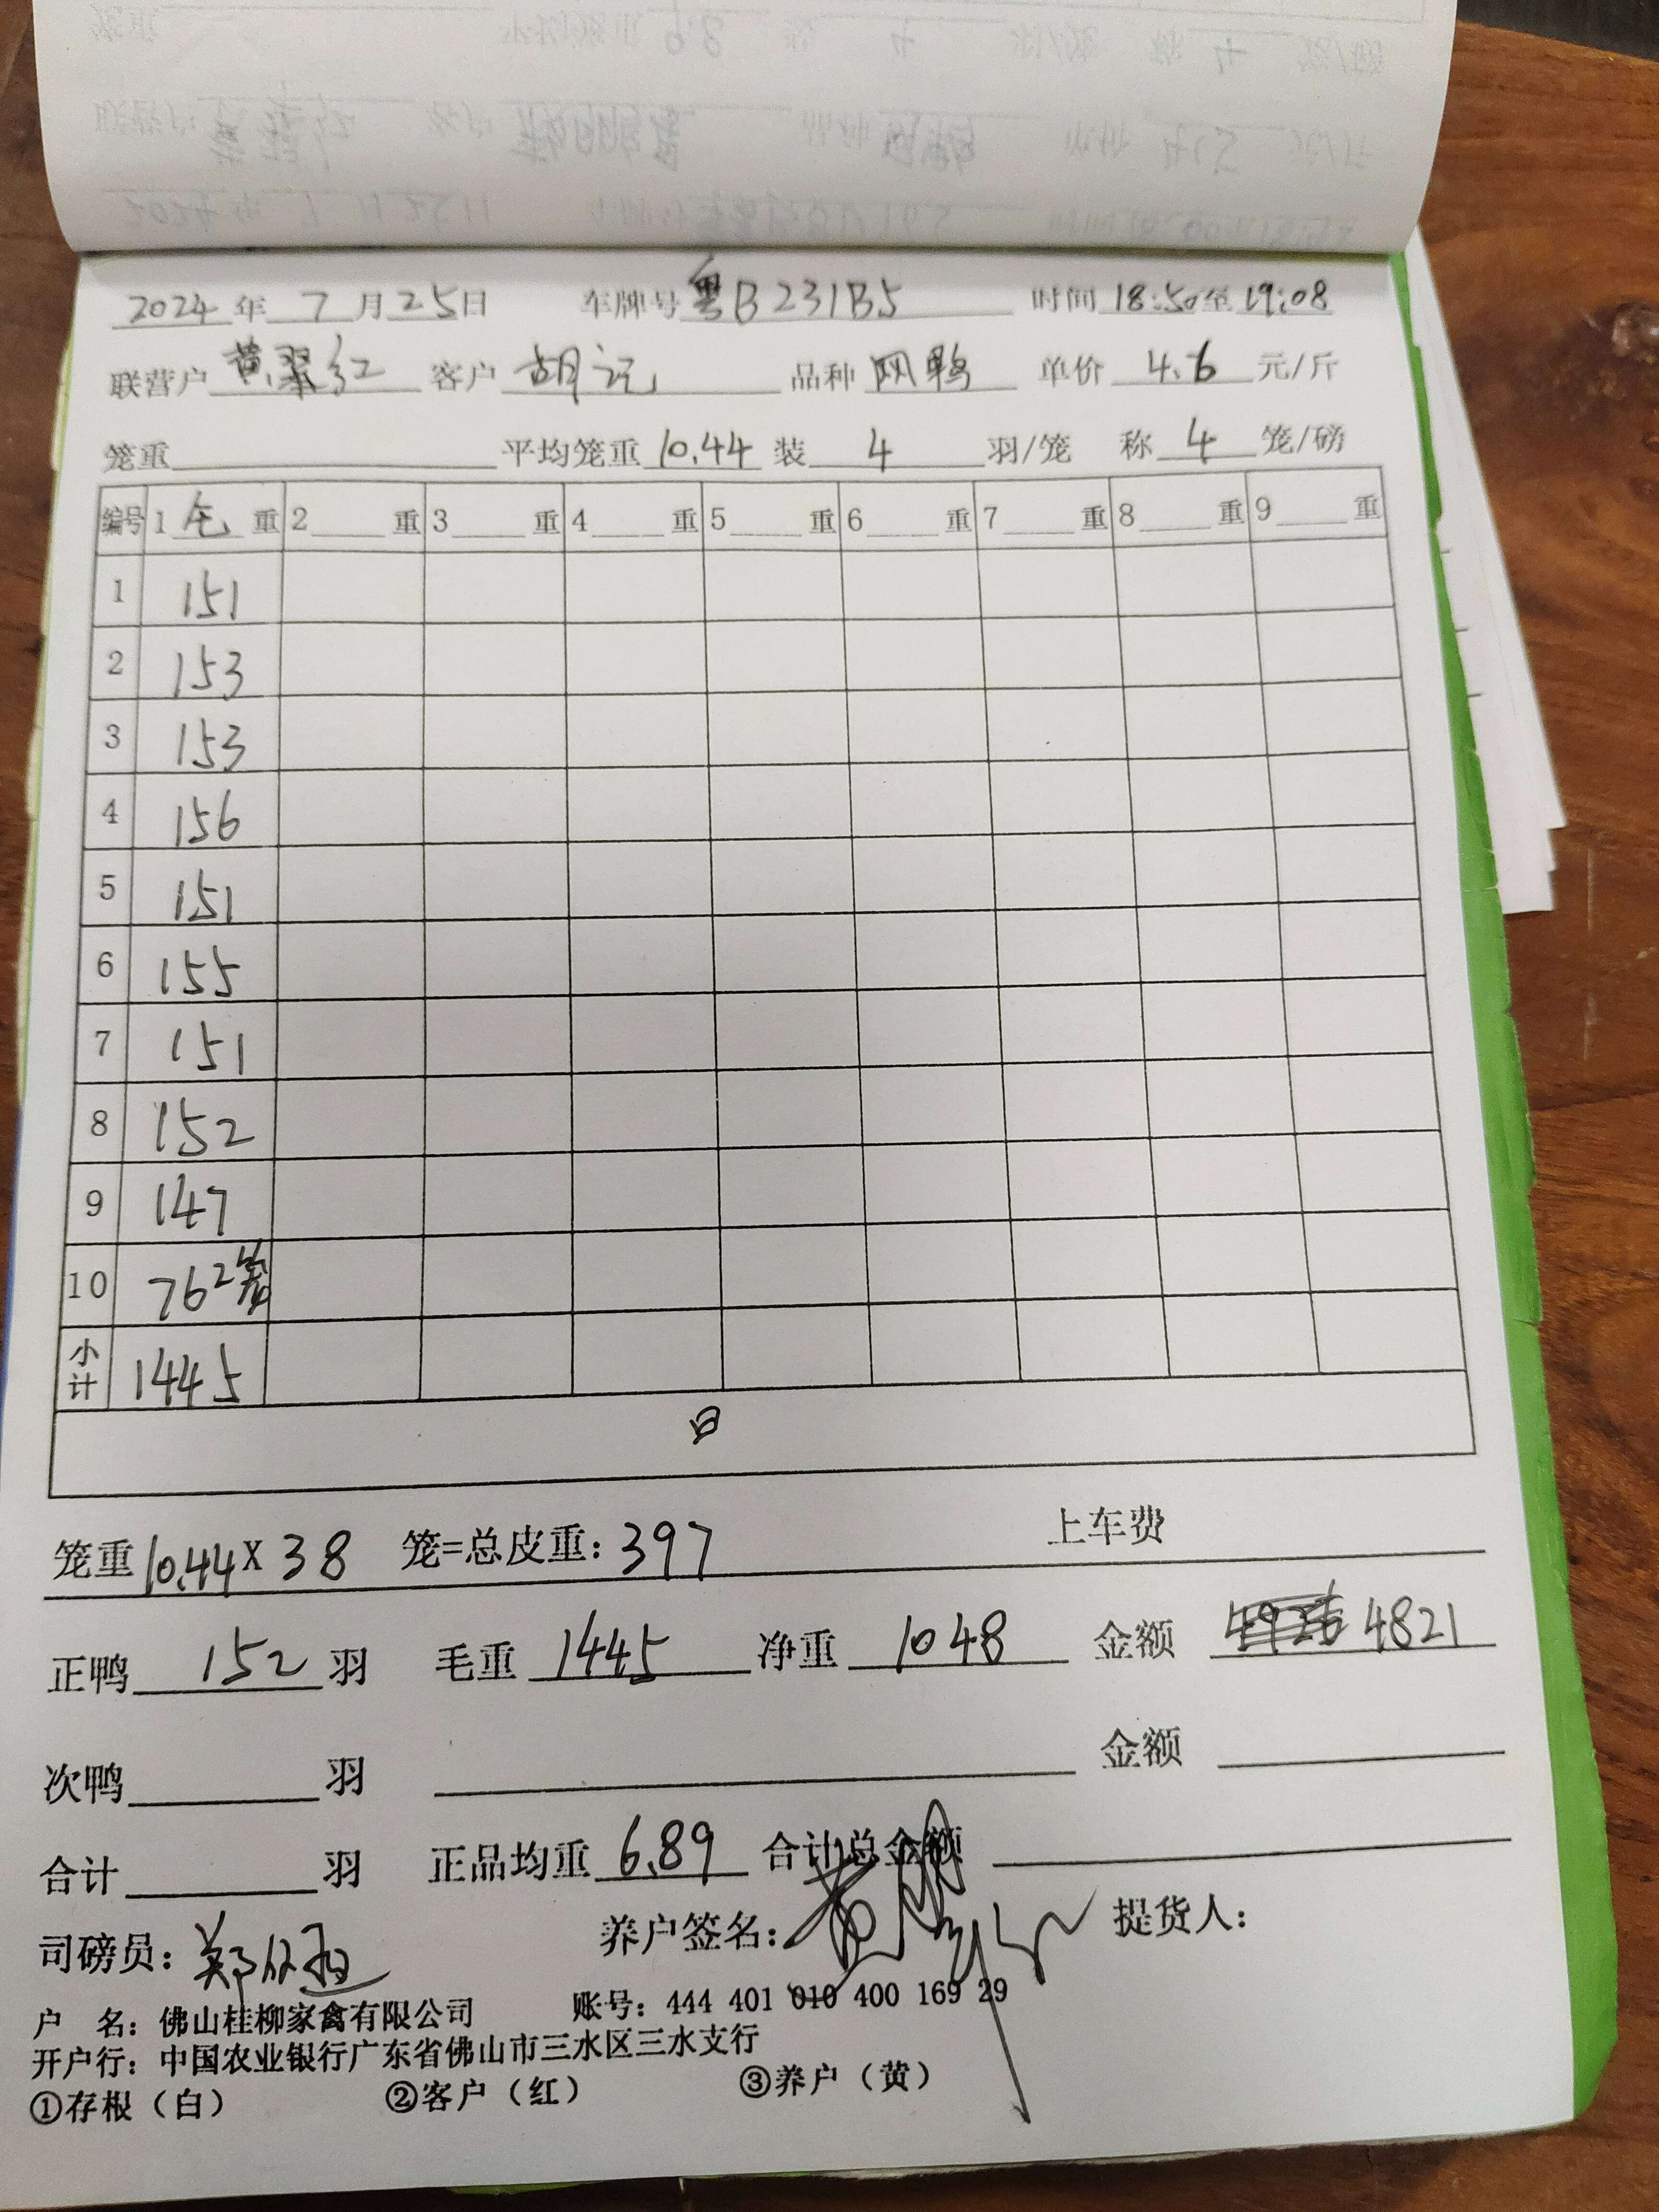 2024年 7 月 25日 车牌号 粤B231B5 时间 18:50至19:08
联营户 黄翠红 客户 胡记 品种 网鸭 单价 4.6 元/斤
笼重 平均笼重 10.44 装 4 羽/笼 称 4 笼/磅
编号 1 毛 重 2 重 3 重 4 重 5 重 6 重 7 重 8 重 9 重
1 151
2 153
3 153
4 156
5 151
6 155
7 151
8 152
9 147
10 76 2笼
小计 1445
笼重 10.44 X 38 笼=总皮重: 397 上车费
正鸭 152 羽 毛重 1445 净重 1048 金额 4821
次鸭 羽 金额
合计 羽 正品均重 6.89 合计总金额
司磅员: 养户签名: 提货人:
户 名: 佛山桂柳家禽有限公司 账号: 444 401 010 400 169 29
开户行: 中国农业银行广东省佛山市三水区三水支行
①存根（白） ②客户（红） ③养户（黄）